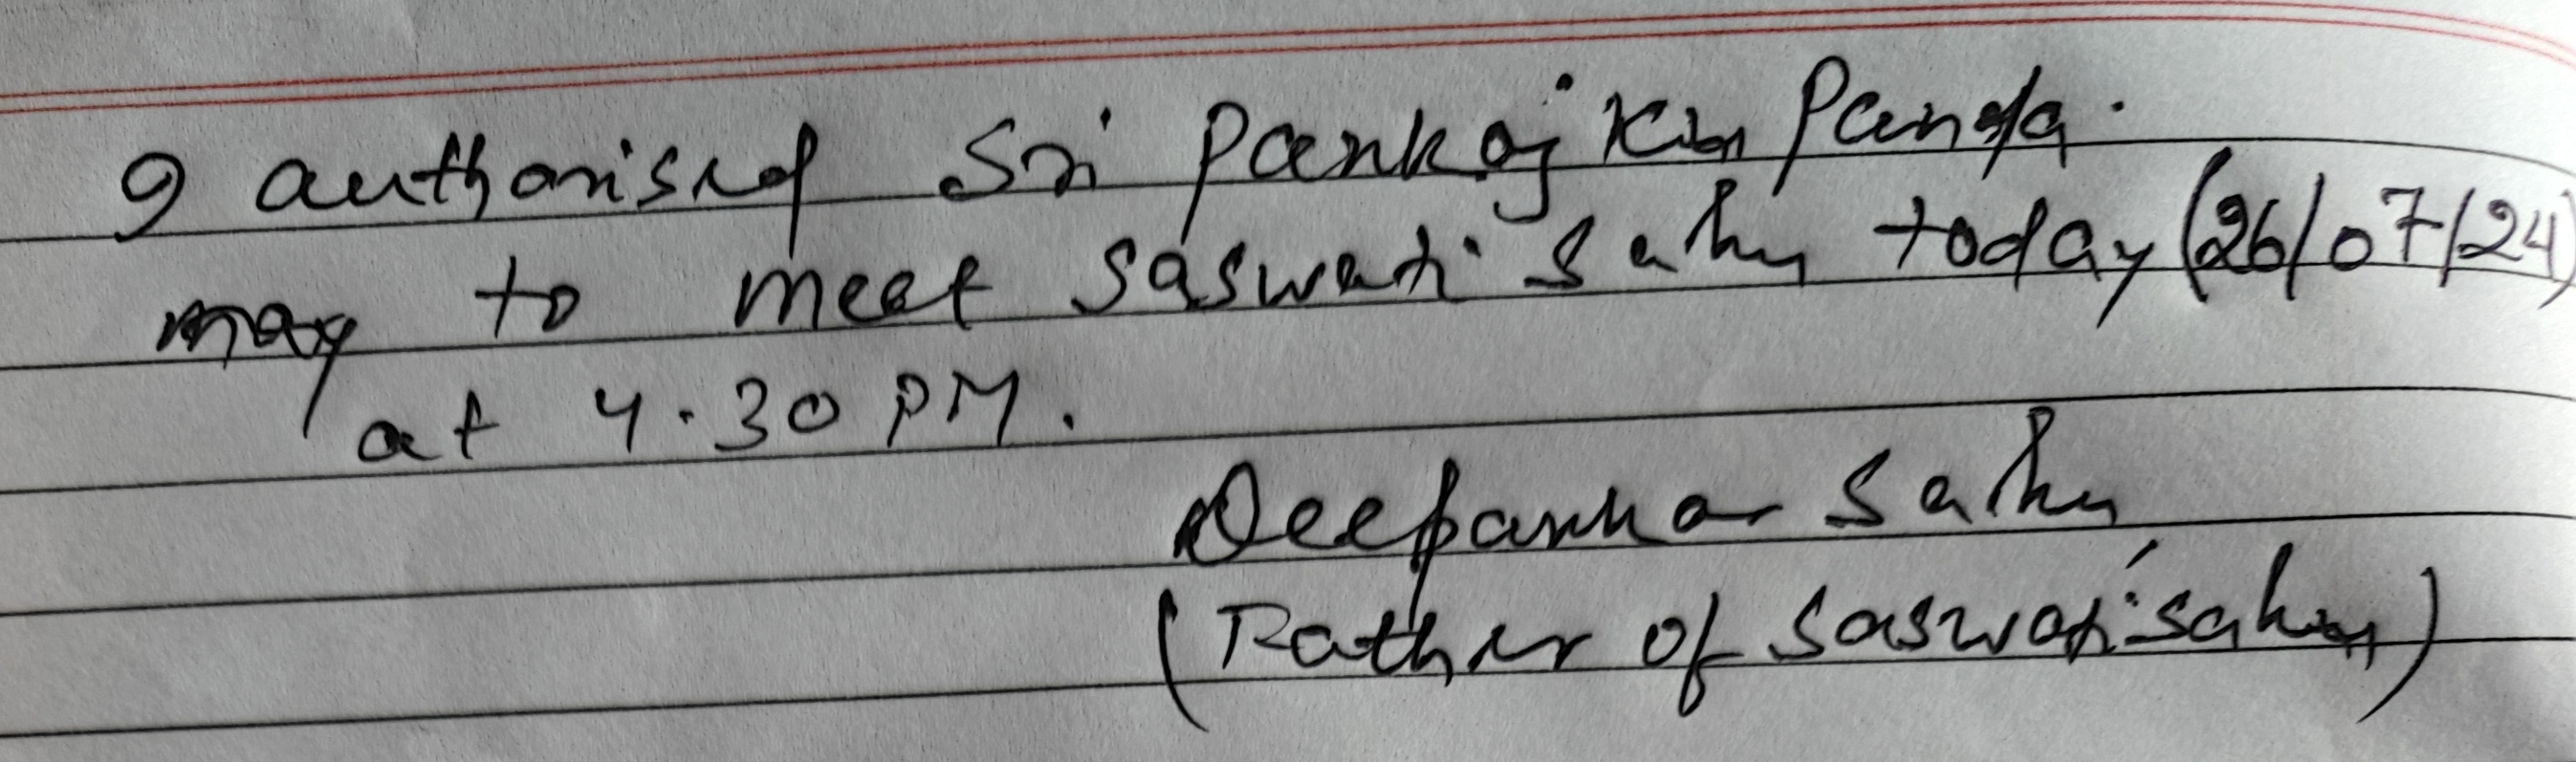 I authorised Sri Pankaj Km Panda.
may to meet Saswati Sahu today (26/07/24)
at 4.30 PM.
Deepankar Sahu
(Father of Saswati Sahu)